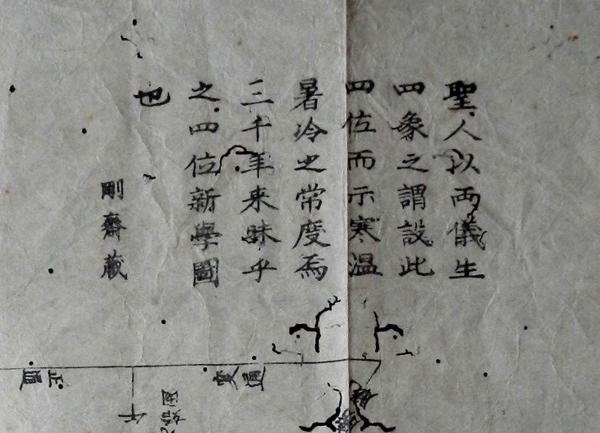 聖人以両儀生
四象之謂設此
四位而示寒温
暑冷之常度焉
三千年来昧乎
之四位新學圖
也
剛齋蔵